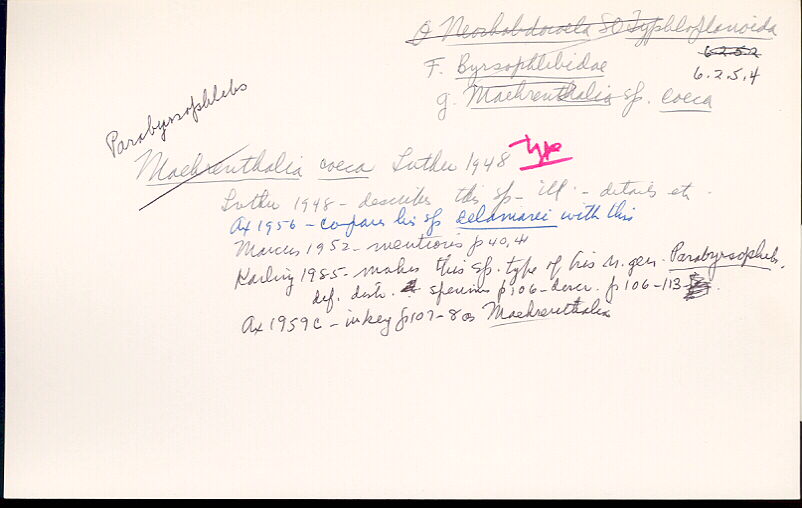 O Neorhabdocoela SO Typhloplanoida
6.2.5.2
F. Byrsophlebidae
6.2.5.4
g. Maehrenthalia sp. coeca
Parabyrsophlebs
Maehrenthalia coeca Luther 1948 Type
Luther 1948 - describes this sp - ill - details etc.
Ax 1956 - compares his sp delamarei with this
Marcus 1952 - mentions p 40, 41
Karling 1985 - makes this sp. type of his n. gen. Parabyrsophlebs,
def. distr. specimens p 106 - descr. p 106-113
Ax 1959 c - in key p 107-8 as Maehrenthalia